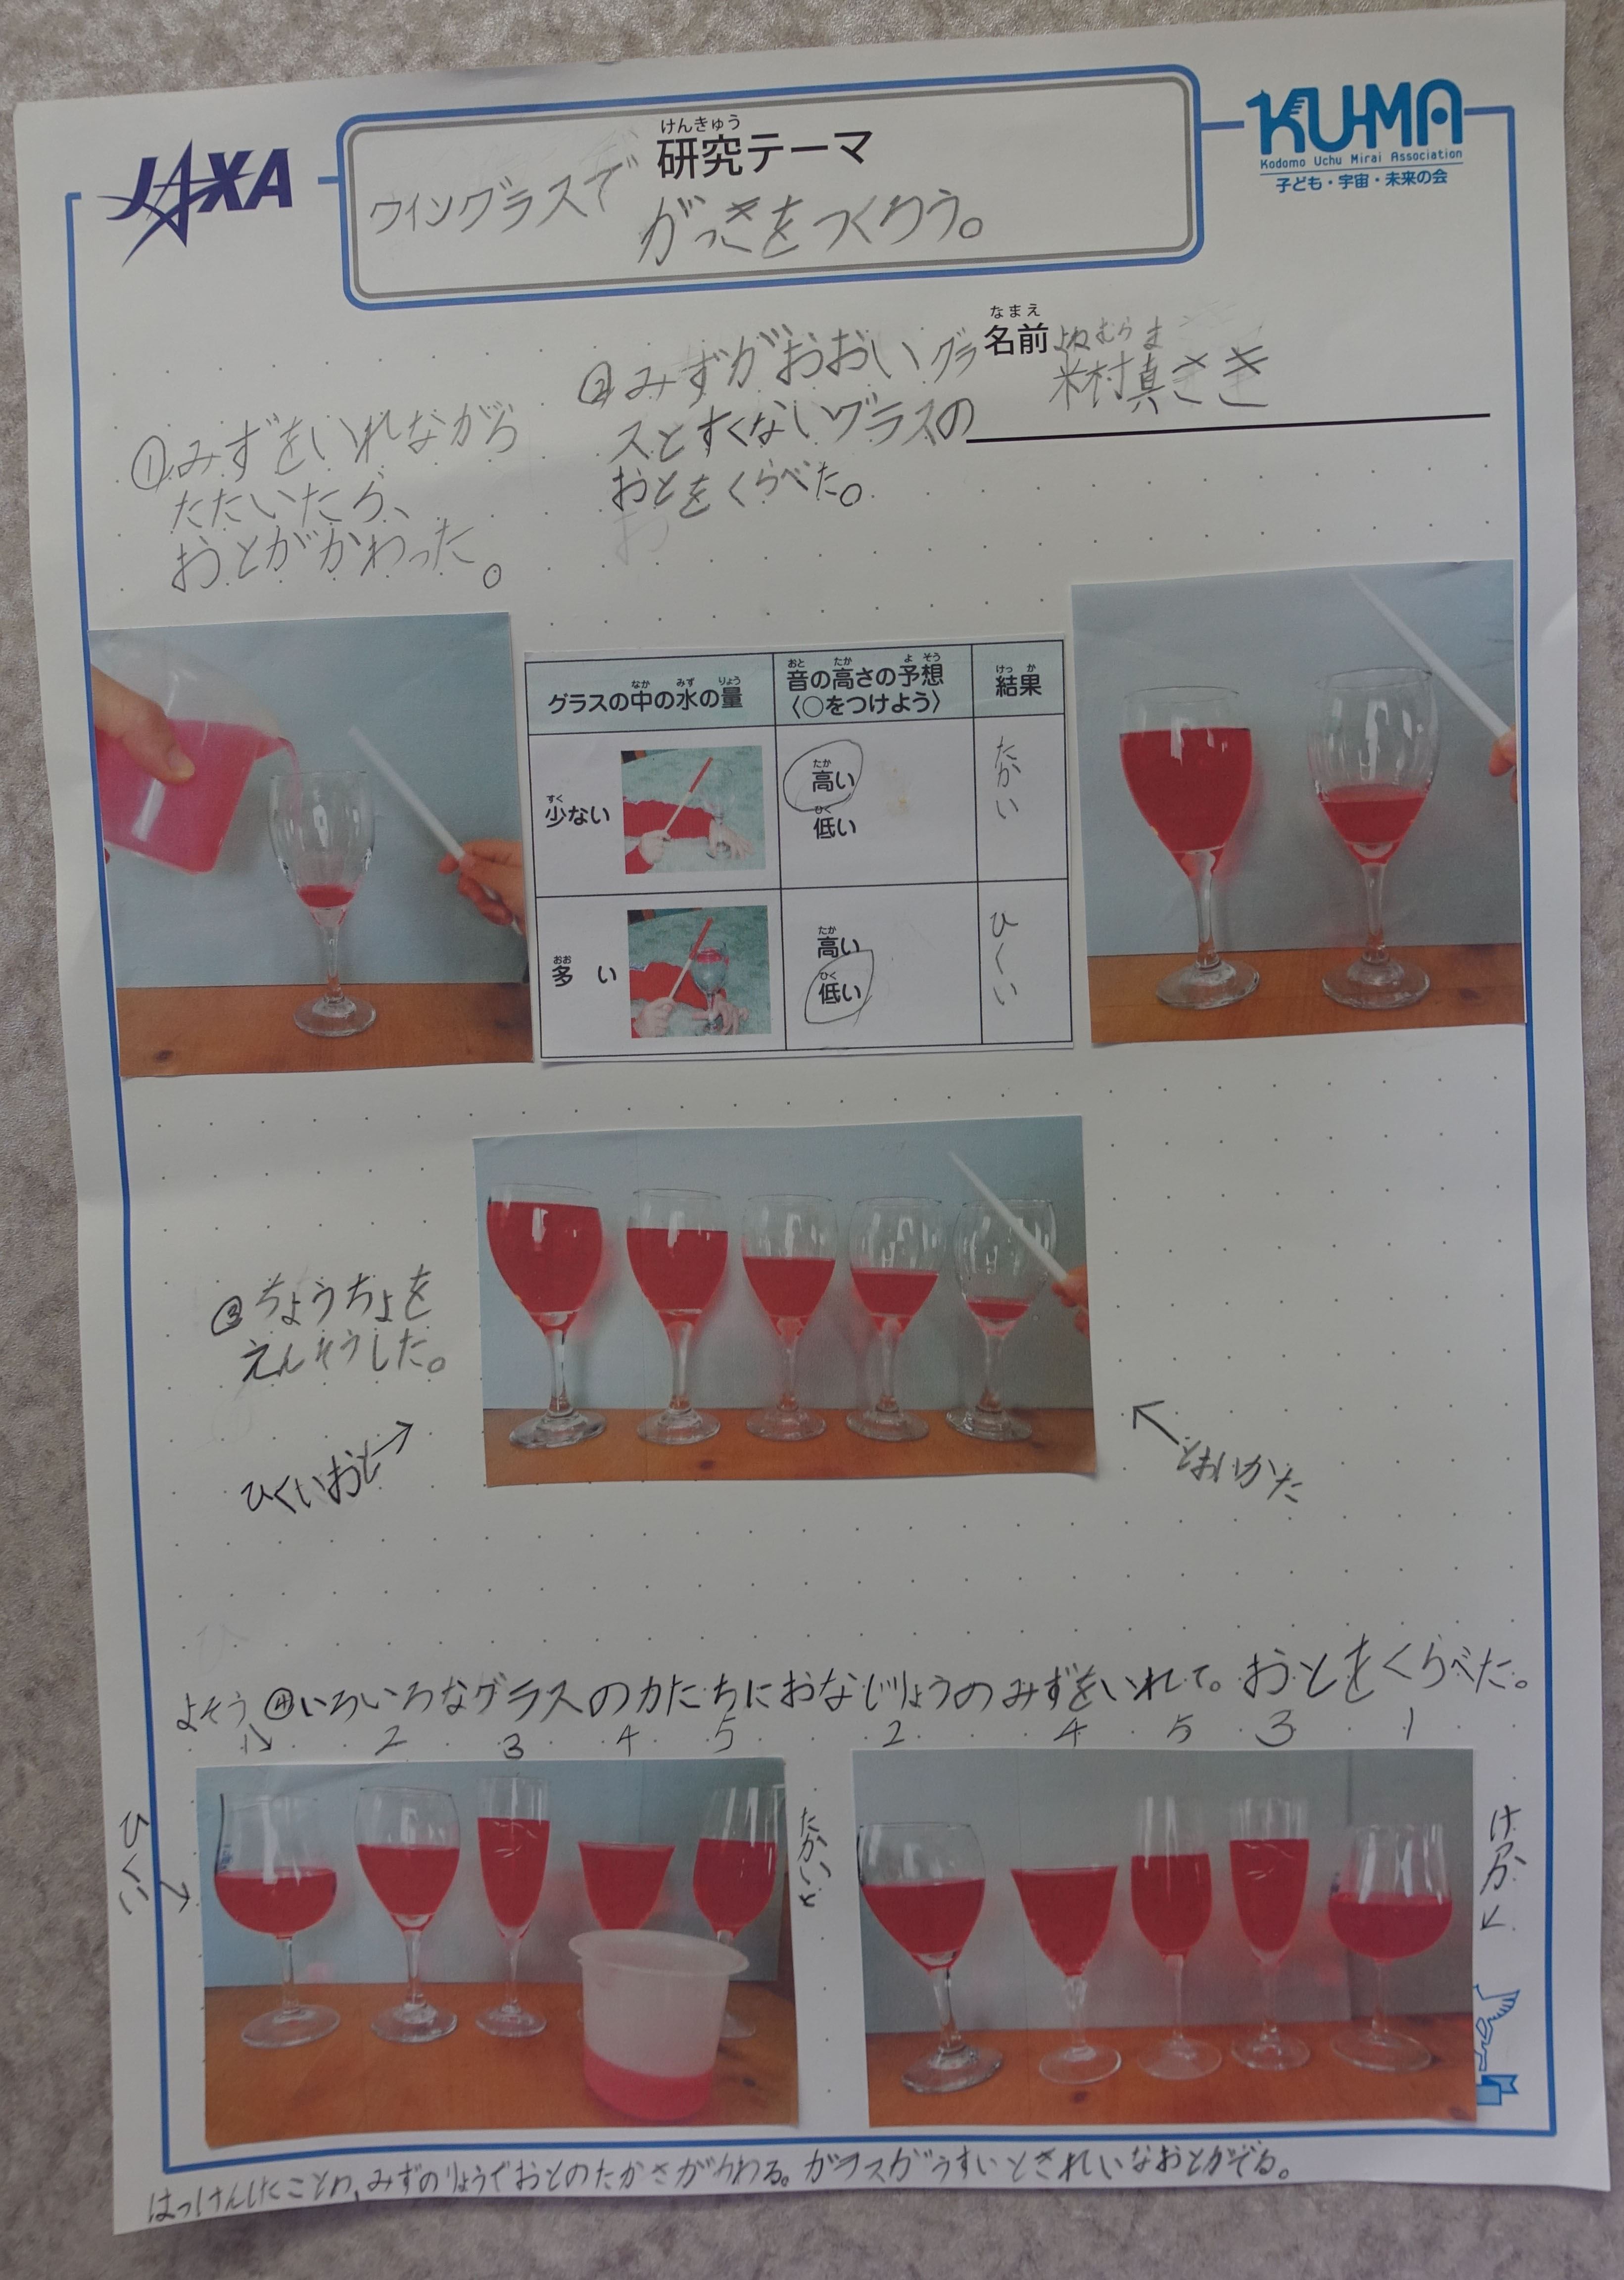 JAXA
けんきゅう
研究テーマ
ウイングラスで
がっきをつくろう。
KUMA
Kodomo Uchu Mirai Association
子ども・宇宙・未来の会
なまえ
名前
よねむらま
米村真さき
①みずをいれながら
たたいたら、
おとがかわった。
②みずがおおいグラ
スとすくないグラスの
おとをくらべた。
なか みず りょう
グラスの中の水の量
おと たか よそう
音の高さの予想
〈○をつけよう〉
けっか
結果
すく
少ない
たか
高い
ひく
低い
たかい
おお
多い
たか
高い
ひく
低い
ひくい
③ちょうちょを
えんそうした。
ひくいおと→
←
よそう ④いろいろなグラスのかたちにおなじりょうのみずをいれて。おとをくらべた。
1 2 3 4 5
2 4 5 3 1
ひくい
たかいと
けっか
はっけんしたことわ、みずのりょうでおとのたかさがかわる。ガラスがうすいときれいなおとがでる。